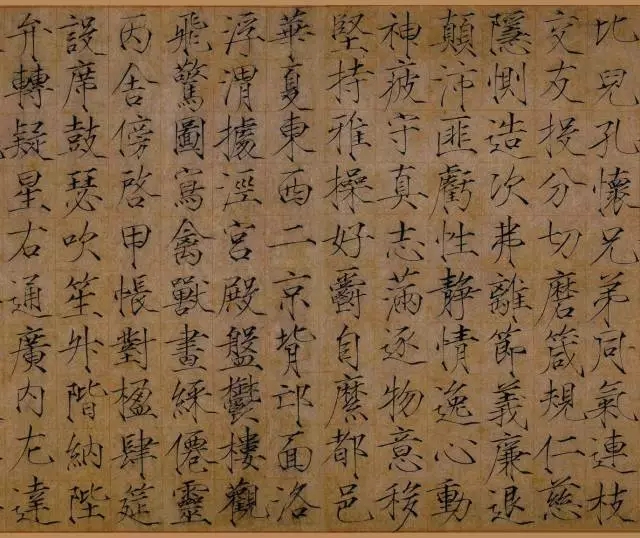 比兒孔懷兄弟同氣連枝
交友投分切磨箴規仁慈
隱惻造次弗離節義廉退
顛沛匪虧性靜情逸心動
神疲守真志滿逐物意移
堅持雅操好爵自縻都邑
華夏東西二京背邙面洛
浮渭據涇宮殿盤鬱樓觀
飛驚圖寫禽獸畫綵僊靈
丙舍傍啓甲帳對楹肆筵
設席鼓瑟吹笙升階納陛
弁轉疑星右通廣内左達